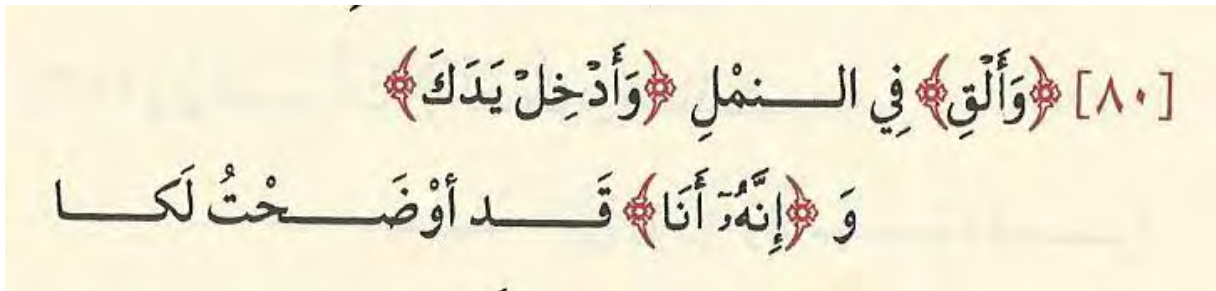 [٨٠] ﴿وَأَلْقِ﴾ فِي النمْلِ ﴿وَأَدْخِلْ يَدَكَ﴾
وَ ﴿إِنَّهُۥٓ أَنَا﴾ قَد أوْضَحْتُ لَكا